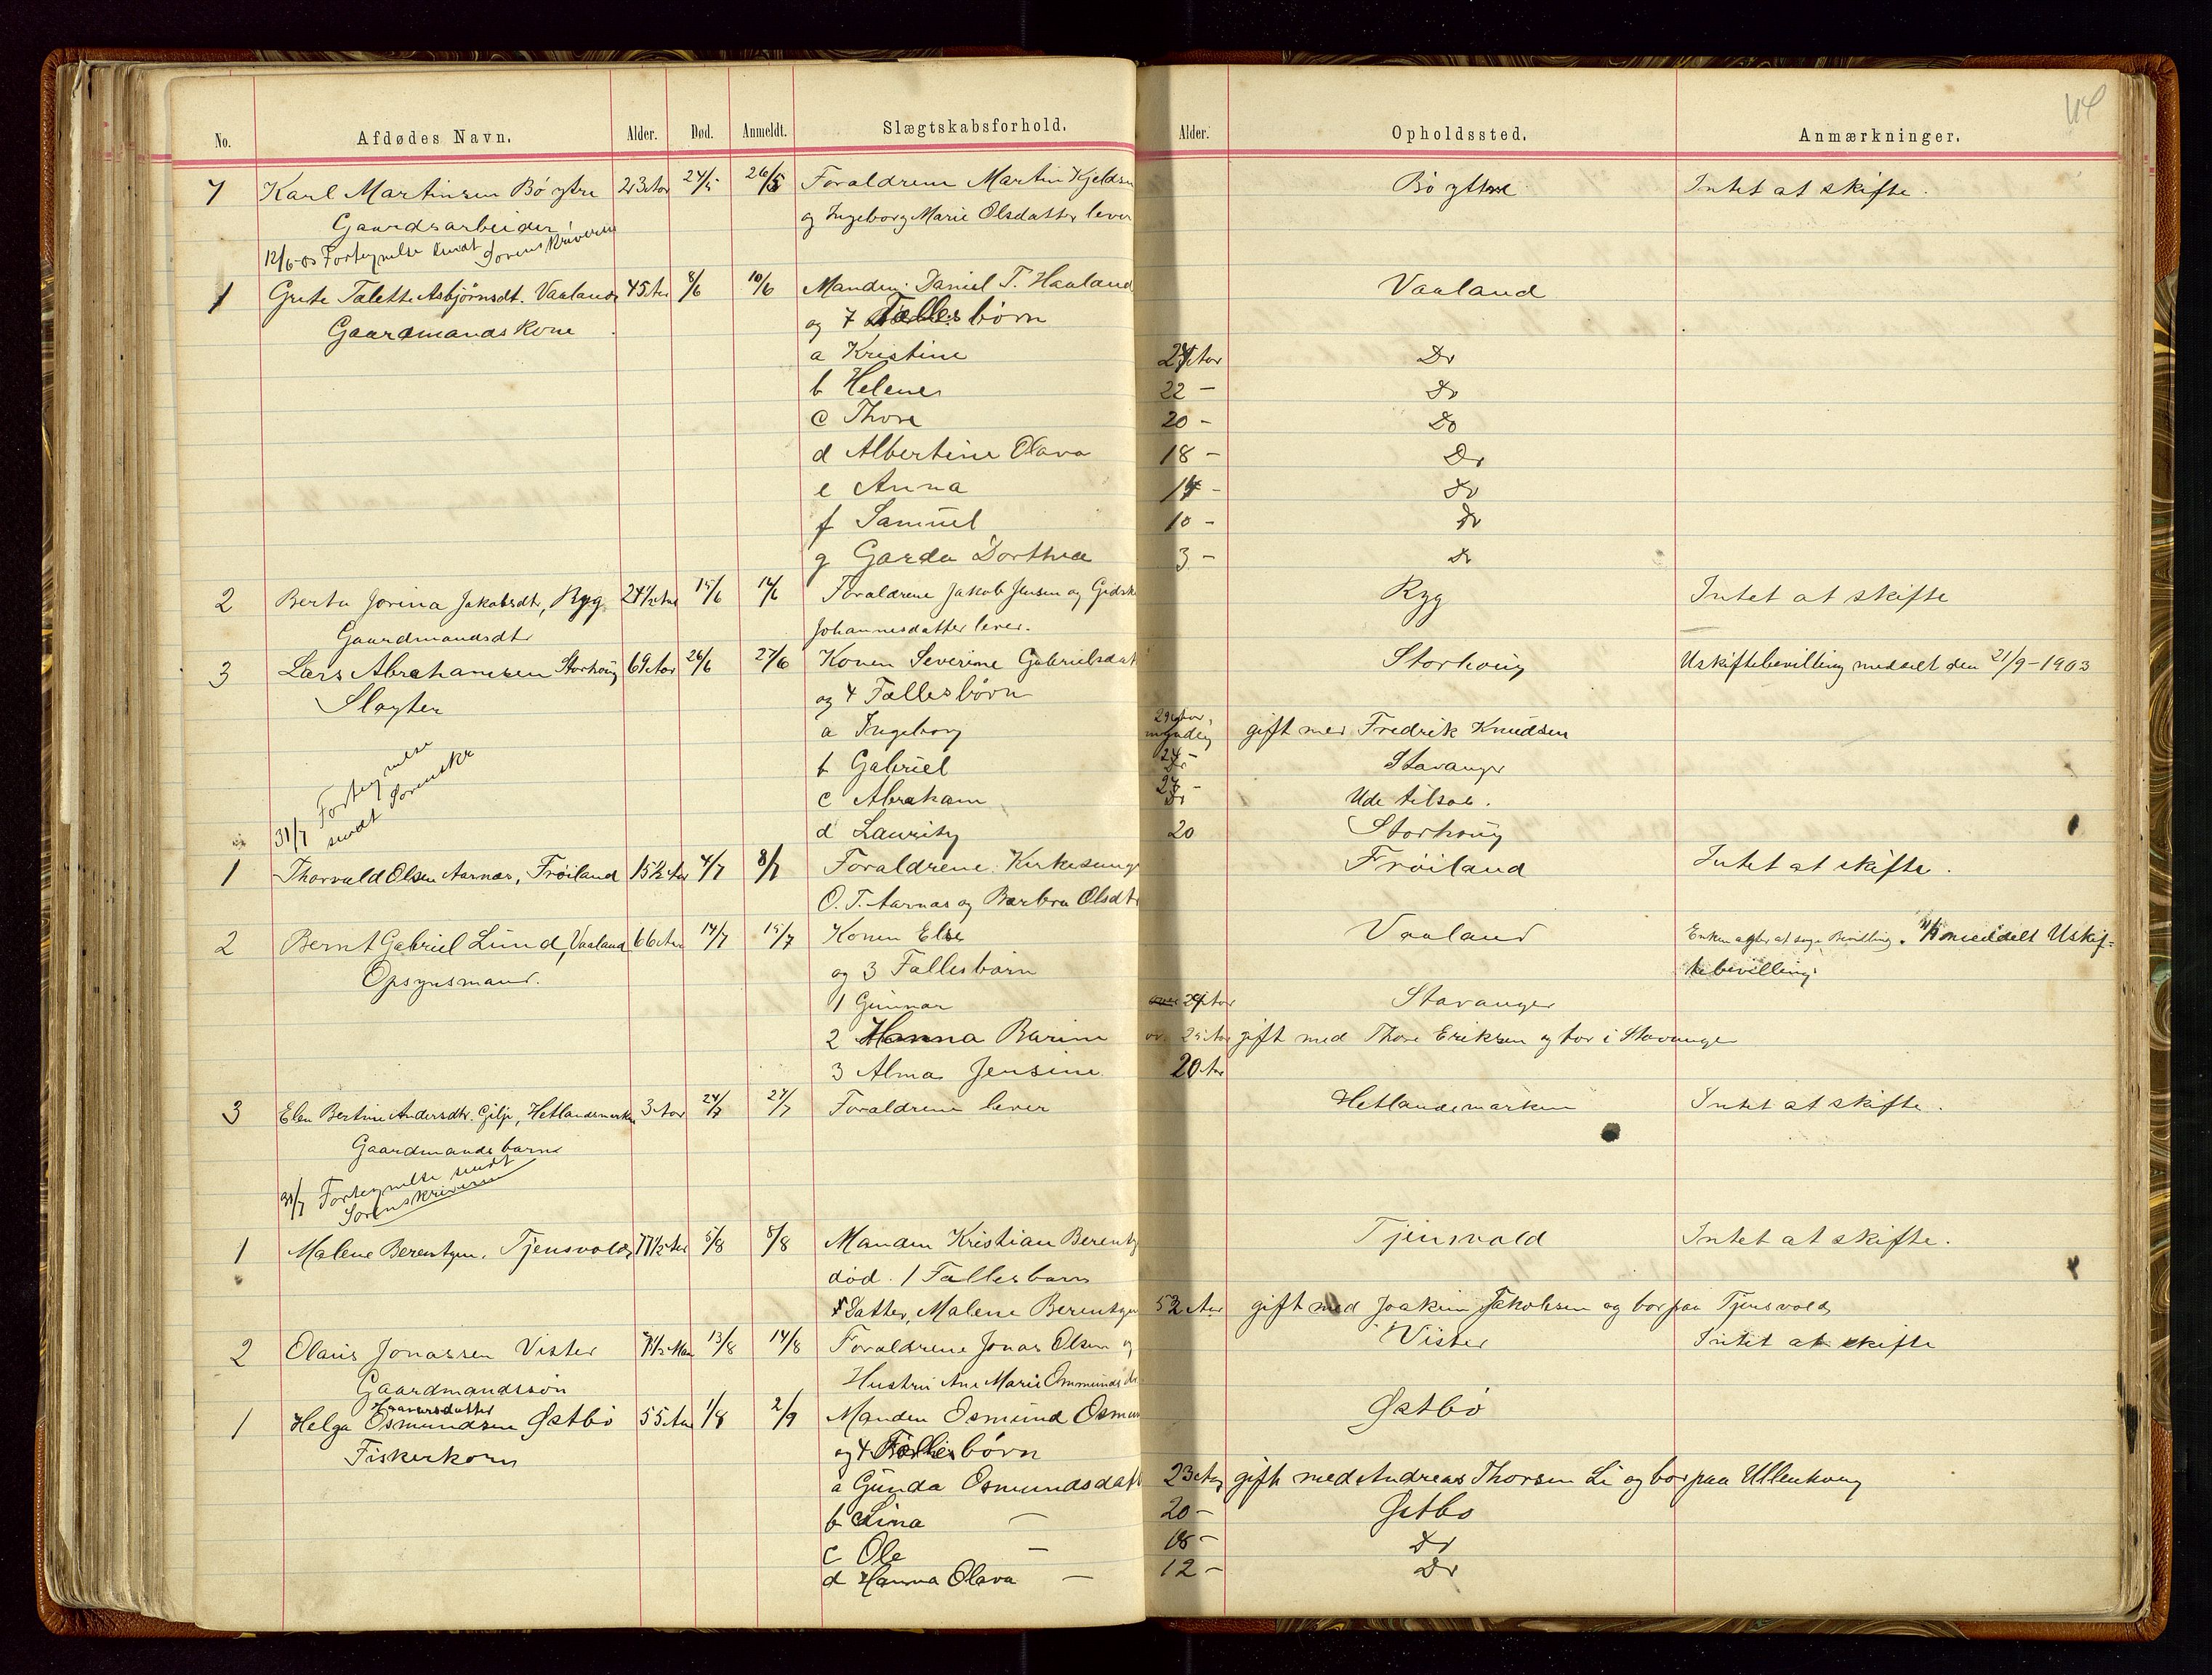 No. Afdødes Navn. Alder. Død. Anmeldt. Slægtskabsforhold. Alder. Opholdssted. Anmærkninger.
7 Karl Martinsen Bö ytre 23 Aar 24/5 26/5 Foraldrene Martin Kjeldsen Bö ytre Intet at skifte.
Gaardsarbeider og Ingeborg Marie Olsdatter lever
12/6-03 Fortegnelse sendt Sorenskriveren
1 Grete Talette Asbjørnsdt. Vaaland 45 Aar 8/6 10/6 Manden Daniel T. Haaland Vaaland
Gaardmandskone og 7 Fælles börn
a Kristine 24 Aar Do
b Helene 22 - Do
c Thore 20 - Do
d Albertine Olava 18 - Do
e Anna 14 - Do
f Samuel 10 - Do
g Garda Dorthea 3 - Do
2 Berta Jorina Jakobsdt, Ryg 24 1/2 Aar 15/6 16/6 Foraldrene Jakob Jensen og Ryg Intet at skifte
Gaardmandsdt Johannesdatter lever.
3 Lars Abrahamsen Storhoug 69 Aar 26/6 27/6 Konen Severine Gabrielsdat Storhoug Uskiftebevilling meddelt den 21/9-1903
Slagter og 4 Fælles börn
a Ingeborg 29 Aar, myndig gift med Fredrik Knudsen
b Gabriel Do Stavanger
c Abraham Do Ude tilsøs.
31/7 Fortegnelse sendt Sorenskr
d Lauritz 20 Storhoug
1 Thorvald Olsen Aarnæs, Fröiland 15 1/2 Aar 4/7 8/7 Foraldrene Kirkesanger Fröiland Intet at skifte.
O. T. Aarnæs og Barbra Olsdt
2 Bernt Gabriel Lund, Vaaland 66 Aar 14/7 15/7 Konen Else Vaaland Enken agter at søge Bevilling. meddelt Uskif-
Opsynsmand. og 3 Fælles börn tebevilling.
1 Gunnar 29 Aar Stavanger
2 Hanna Barine 25 Aar gift med Thore Eriksen og bor i Stavanger
3 Alma Jensine 20 Aar
3 Elen Bertine Andersdtr. Gilje, Hetlandsmarken 3 Aar 24/7 27/7 Foraldrene lever Hetlandsmarken Intet at skifte.
Gaardmandsbarn
31/7 Fortegnelse sendt
Sorenskriveren
1 Malene Berentzen, Tjensvold 77 1/2 Aar 5/8 8/8 Manden Kristian Berentz Tjensvold Intet at skifte.
död. 1 Fællesbarn
Datter, Malene Berentzen 52 Aar gift med Joakim Jakobsen og bor paa Tjensvold
2 Olaus Jonassen Vister 7 1/2 Mdr 13/8 14/8 Foraldrene Jonas Olsen og Vister Intet at skifte
Gaardmandssön Hustru Ane Marie Ommunds dt
Haavarsdatter
1 Helga Osmundsen Østbö 55 Aar 1/8 2/9 Manden Osmund Osmun Østbö
Fiskerkone og 4 Fælles börn
a Gunda Osmundsdatt 23 Aar gift med Andreas Thorsen Li og bor paa Ullenhoug
b Lina — 20 - Østbö
c Ole — 18 - Do
d Hanna Olava — 12 - Do